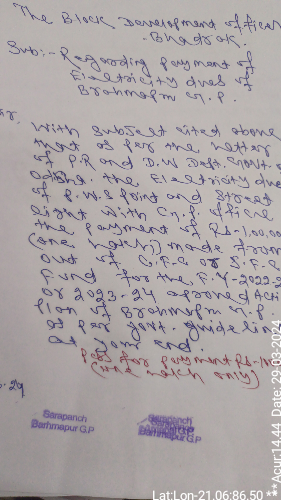 The Block Development officer
Bhadrak.
Sub:- Regarding payment of
Eleltricity dues of
Brahmapm G.P.
With Subject cited above
that as per the letter
of P.R and D.W Deft. Govt. of
the Eleltricity due
of P.W.S point and Street
light with G.P. office
the payment of Rs-1,00,00
(one lakh) made from
out of C.F.C or S.F.C
Fund for the F.Y-2022-2
or 2023-24 aproved Acti
Plan of Brahmapm G.P
as per govt. guide lin
at your end.
Pass for payment Rs-
(one lakh only)
Sarapanch
Barhmapur G.P
Sarapanch
Barhmapur G.P
Lat:Lon-21.06:86.50 **Acur:14.44 Date: 29-03-2024